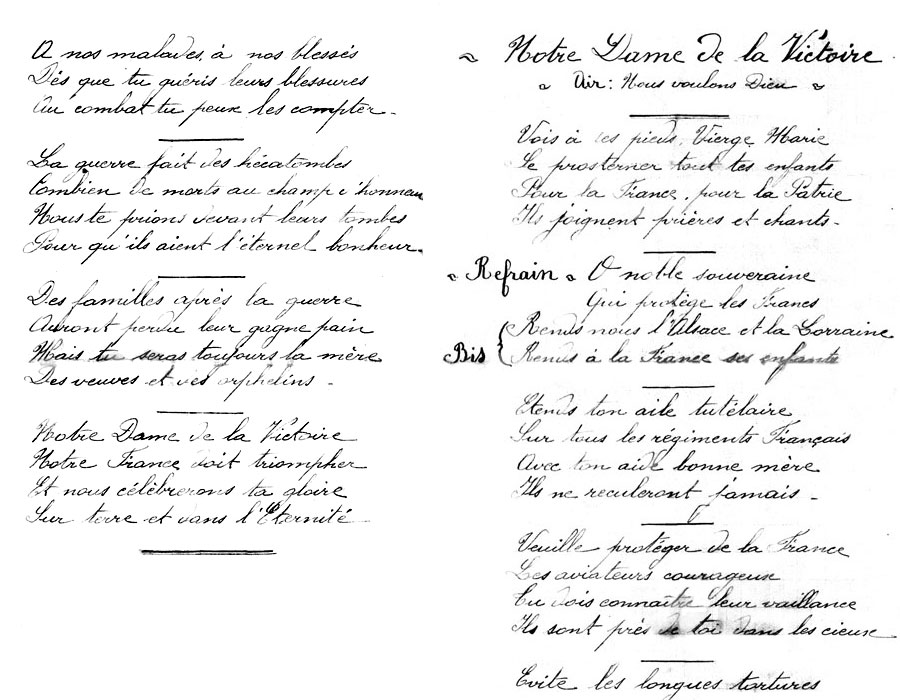 A nos malades, à nos blessés
Dès que tu guéris leurs blessures
Au combat tu peux les compter.
La guerre fait des hécatombes
Combien de morts au champ d'honneur
Nous te prions devant leurs tombes
Pour qu'ils aient l'éternel bonheur.
Des familles après la guerre
Auront perdu leur gagne pain
Mais tu seras toujours la mère
Des veuves et des orphelins.
Notre Dame de la Victoire
Notre France doit triompher
Et nous célèbrerons ta gloire
Sur terre et dans l'Éternité
~ Notre Dame de la Victoire
~ Air: Nous voulons Dieu ~
Vois à tes pieds, Vierge Marie
Se prosterner tout tes enfants
Pour la France, pour la Patrie
Ils joignent prières et chants.
~ Refrain ~ O noble souveraine
Qui protège les Francs
Rends nous l'Alsace et la Lorraine
Bis { Rends à la France ses enfants
Etends ton aile tutélaire
Sur tous les régiments Français
Avec ton aide bonne mère
Ils ne reculeront jamais.
Veuille protéger de la France
Les aviateurs courageux
Tu dois connaître leur vaillance
Ils sont près de toi dans les cieux
Evite les longues tortures